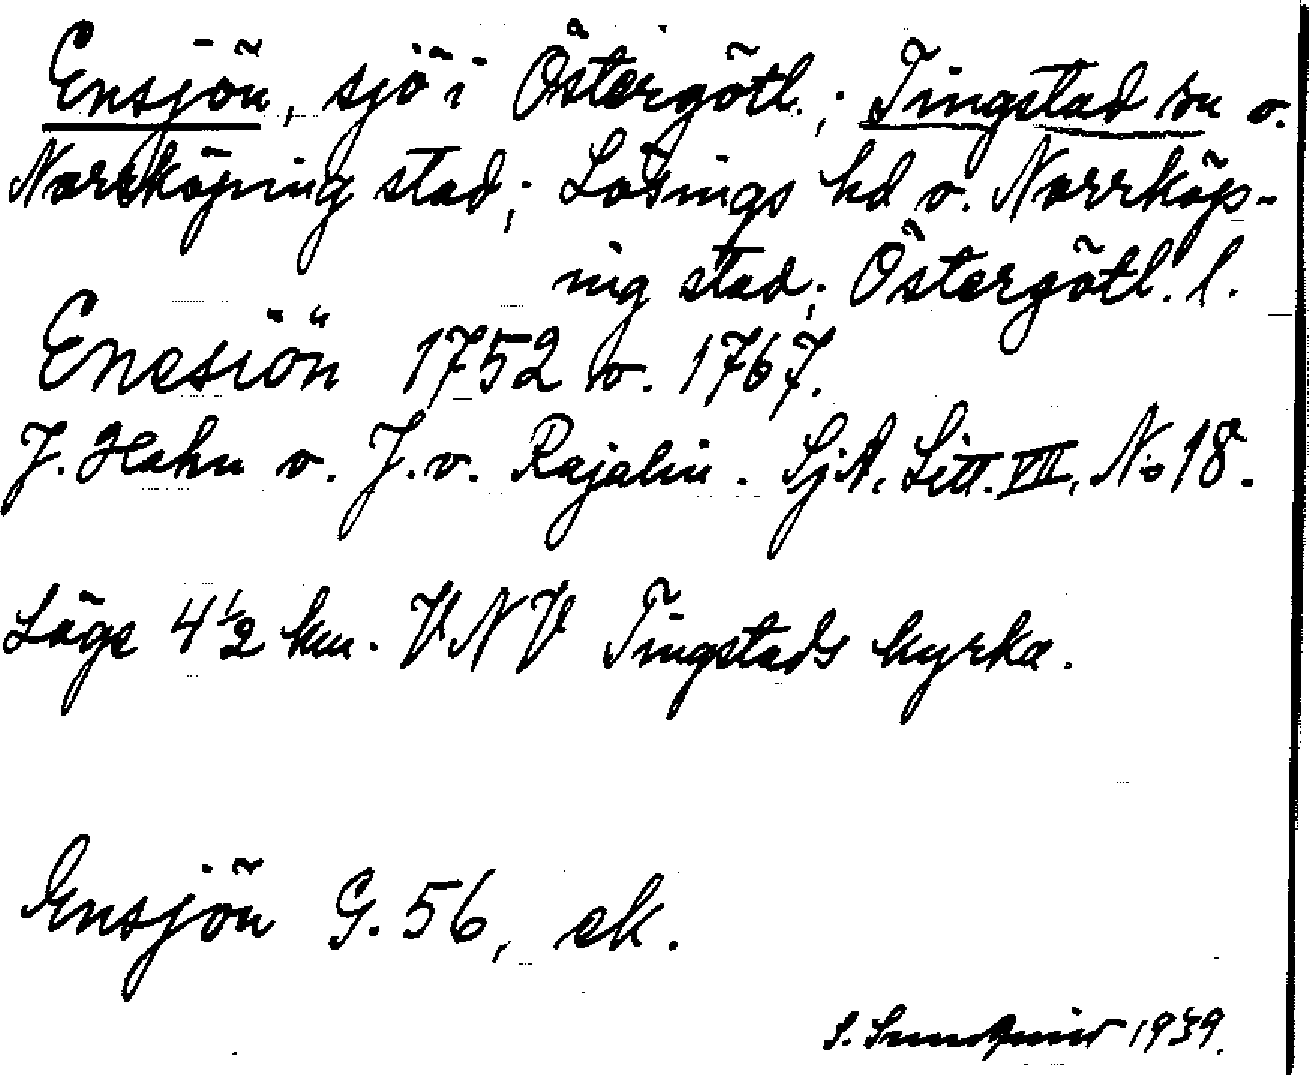 Ensjön, sjö i Östergötl.; Tingstad sn o.
Norrköping stad; Lösings hd o. Norrköp-
ing stad; Östergötl. l.
Enesiön 1752 o. 1767.
J. Hahn o. J. v. Rajalin. SjA. Litt. VII, No 18.
Läge 4½ km. VNV Tingstads kyrka.
Ensjön G. 56, ek.
S. Sundquist 1939.